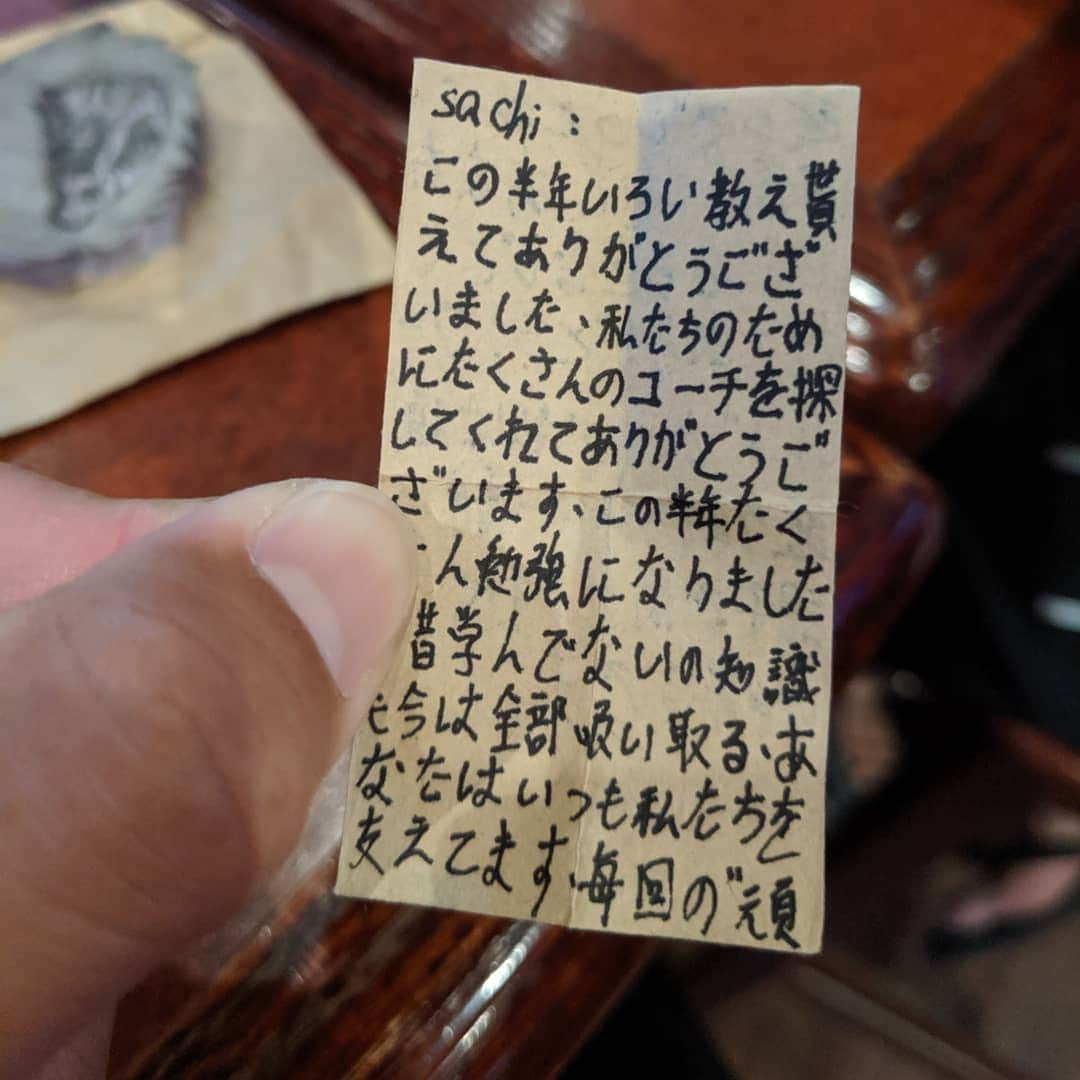 sachi:
この半年いろい教え貰
えてありがとうござ
いました、私たちのため
にたくさんのコーチを探
してくれてありがとうご
ざいます、この半年たく
ん勉強になりました
昔学んでないの知識
今は全部吸い取る、あ
なたはいつも私たちを
支えてます、毎回の"頑